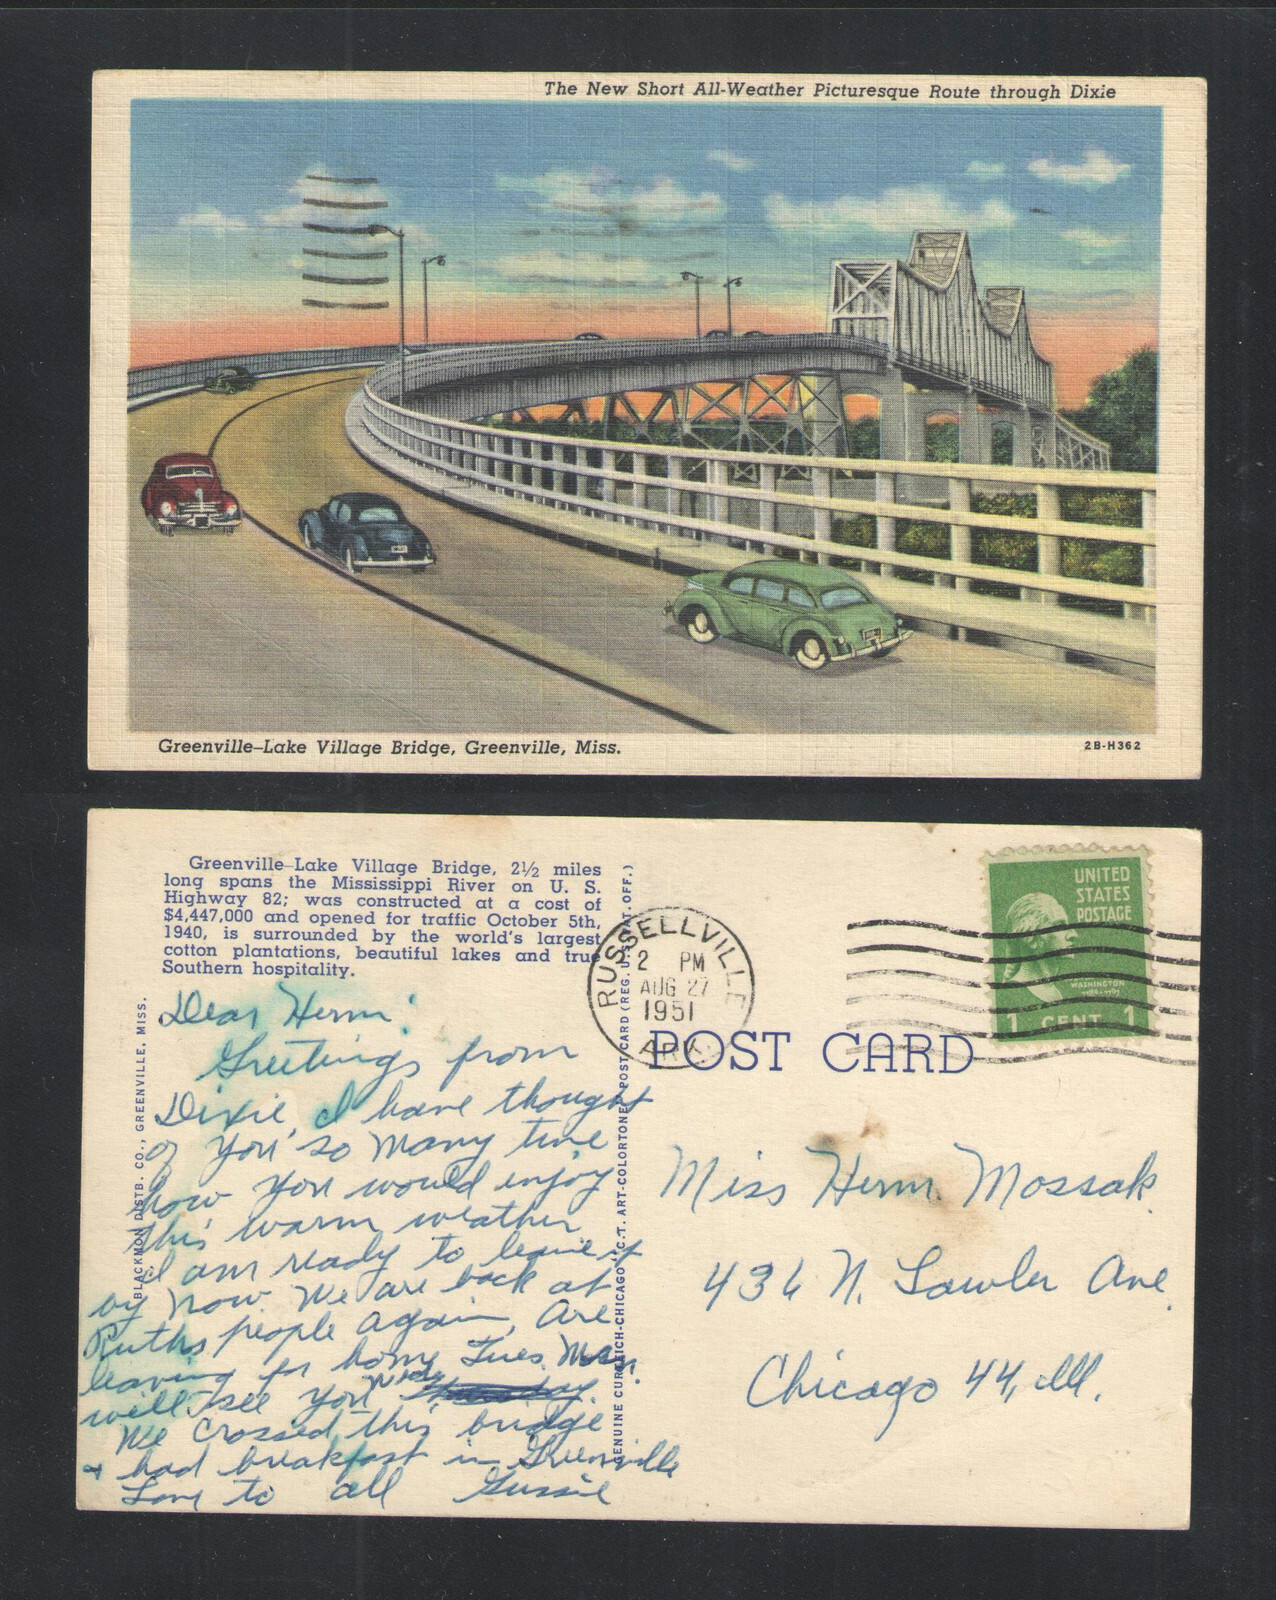 The New Short All-Weather Picturesque Route through Dixie
Greenville-Lake Village Bridge, Greenville, Miss.
2B-H362
Greenville-Lake Village Bridge, 2½ miles
long spans the Mississippi River on U. S.
Highway 82; was constructed at a cost of
$4,447,000 and opened for traffic October 5th,
1940, is surrounded by the world's largest
cotton plantations, beautiful lakes and true
Southern hospitality.
BLACKMON DISTB. CO., GREENVILLE, MISS.
GENUINE CURTEICH-CHICAGO "C.T. ART-COLORTONE" POST CARD (REG. U.S. PAT. OFF.)
RUSSELLVILLE
2 PM
AUG 27
1951
ARK.
UNITED
STATES
POSTAGE
WASHINGTON
1789-1797
1 CENT 1
POST CARD
Dear Herm.
Greetings from
Dixie, I have thought
of you so many time
how you would enjoy
this warm weather
I am ready to leave it
by now. We are back at
Ruths people again, Are
leaving for home Tues.
will see you Wed.
We crossed this bridge
& had breakfast in Greenville
Love to all Gussie
Miss Herm. Mossak
436 N. Lawler Ave.
Chicago 44, Ill.